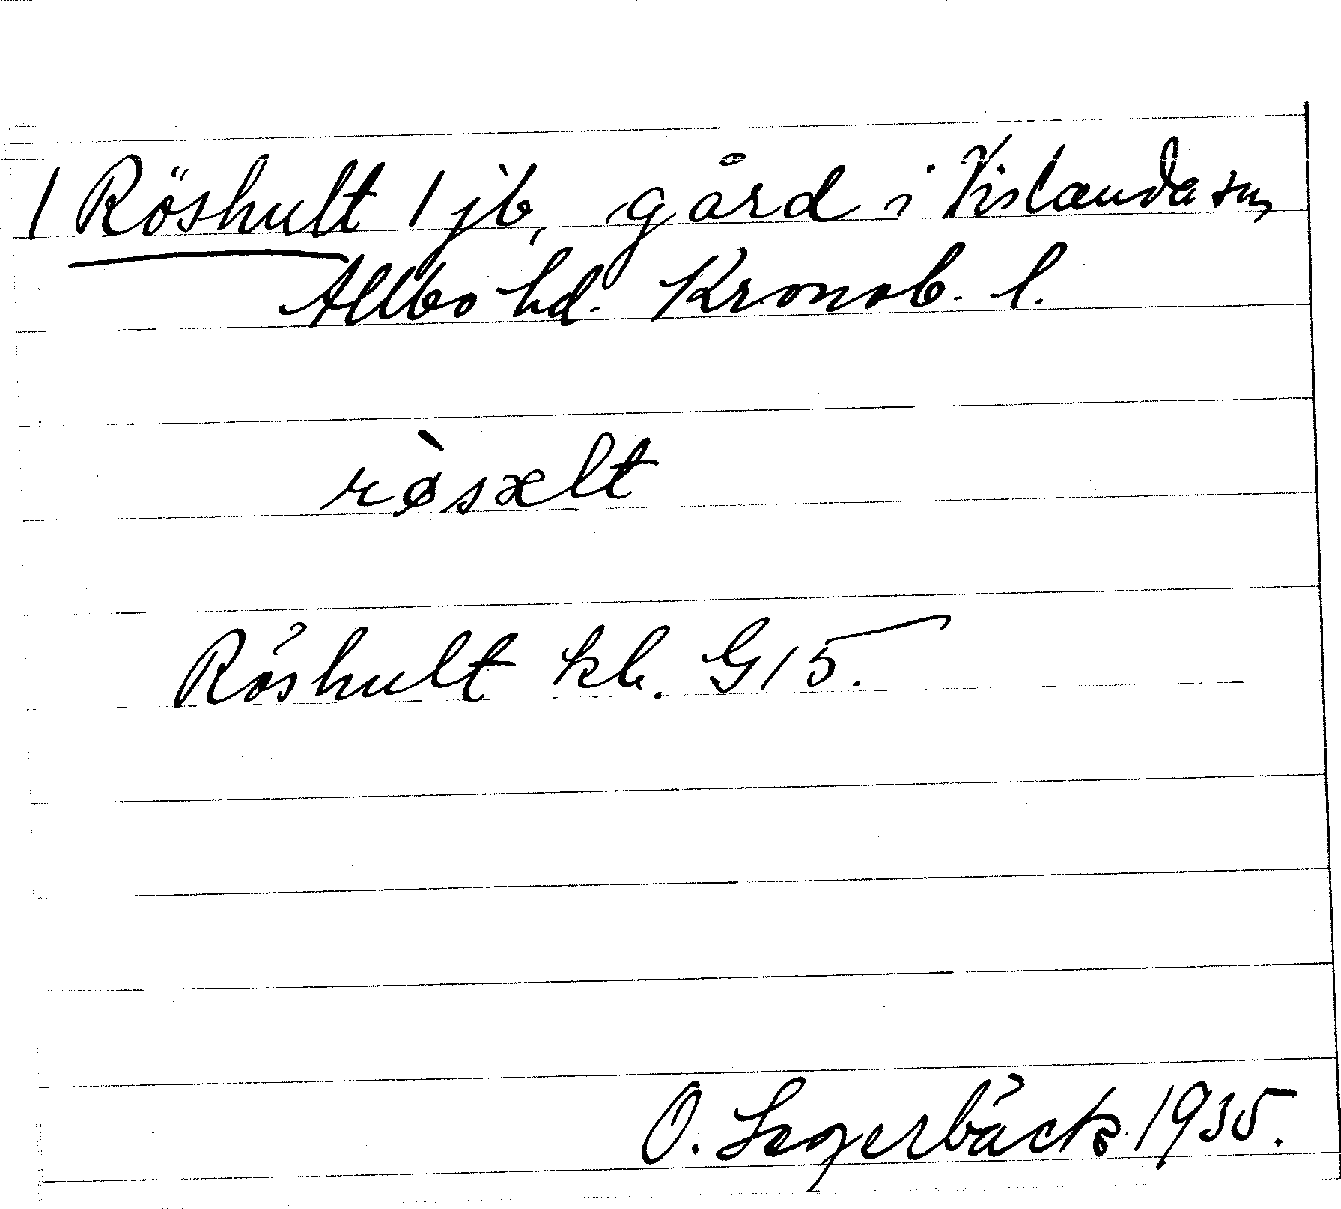 / Röshult / jb, gård i Vislanda sn,
Allbo hd. Kronob. l.
rø̀sælt
Röshult kh. G15.
O. Segerbäck 1935.